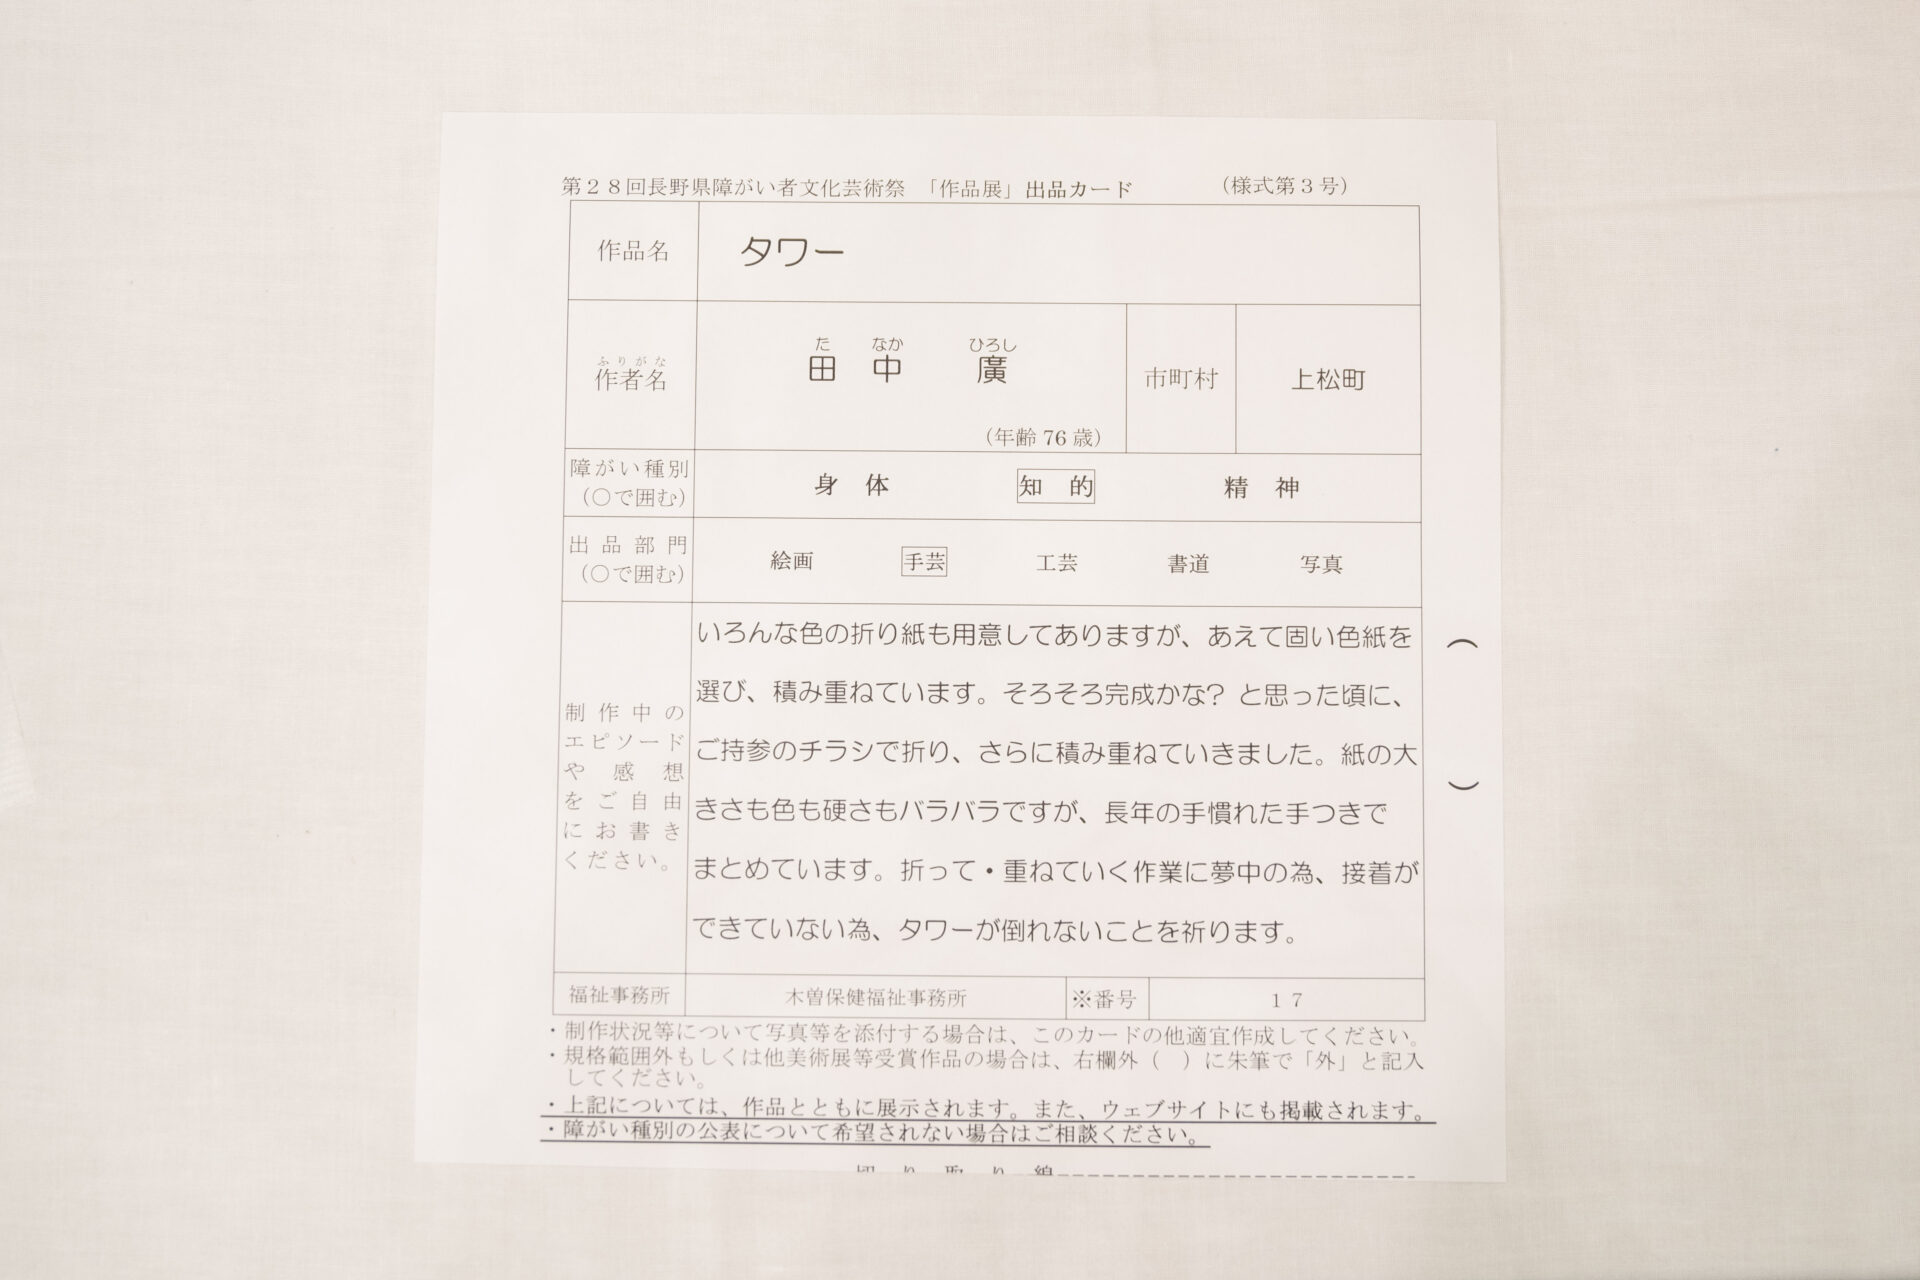 第２８回長野県障がい者文化芸術祭 「作品展」出品カード （様式第３号）
作品名 タワー
た なか ひろし
ふりがな
作者名 田 中 廣 市町村 上松町
（年齢 76 歳）
障がい種別 身 体 知 的 精 神
（〇で囲む）
出品部門 絵画 手芸 工芸 書道 写真
（〇で囲む）
制作中の
エピソード
や感想
をご自由
にお書き
ください。
いろんな色の折り紙も用意してありますが、あえて固い色紙を
選び、積み重ねています。そろそろ完成かな? と思った頃に、
ご持参のチラシで折り、さらに積み重ねていきました。紙の大
きさも色も硬さもバラバラですが、長年の手慣れた手つきで
まとめています。折って・重ねていく作業に夢中の為、接着が
できていない為、タワーが倒れないことを祈ります。
（ ）
福祉事務所 木曽保健福祉事務所 ※番号 １７
・制作状況等について写真等を添付する場合は、このカードの他適宜作成してください。
・規格範囲外もしくは他美術展等受賞作品の場合は、右欄外（ ）に朱筆で「外」と記入
してください。
・上記については、作品とともに展示されます。また、ウェブサイトにも掲載されます。
・障がい種別の公表について希望されない場合はご相談ください。
切 り 取 り 線